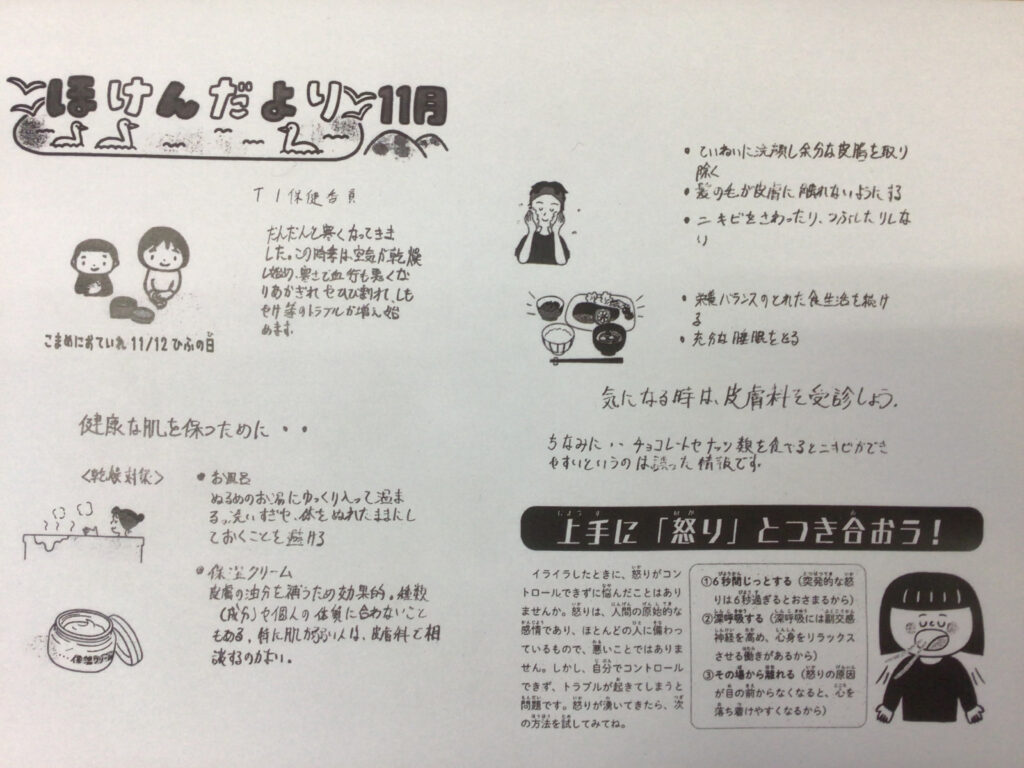 ほけんだより 11月
T1保健委員
だんだんと寒くなってきま
した。この時季は、空気が乾燥
し始め、寒さで血行も悪くな
りあかぎれやひび割れ、しも
やけ等のトラブルが増え始
めます。
こまめにおていれ 11/12 ひふの日
健康な肌を保つために・・
<乾燥対策>
• お風呂
ぬるめのお湯にゆっくり入って温ま
る。洗いすぎや、体をぬれたままにし
ておくことを避ける
• 保湿クリーム
皮膚の油分を補うため効果的。種類
(成分)や個人の体質に合わないこと
もある。特に肌が弱い人は、皮膚科で相
談するのがよい。
保湿クリーム
• ていねいに洗顔し余分な皮脂を取り
除く
• 髪の毛が皮膚に触れないようにする
• ニキビをさわったり、つぶしたりしな
い
• 栄養バランスのとれた食生活を続け
る
• 充分な睡眠をとる
気になる時は、皮膚科を受診しよう。
ちなみに・・チョコレートやナッツ類を食べるとニキビができ
やすいというのは誤った情報です。
上手に「怒り」とつき合おう!
イライラしたときに、怒りがコン
トロールできずに悩んだことはあ
りませんか。怒りは、人間の原始的な
感情であり、ほとんどの人に備わっ
ているもので、悪いことではありま
せん。しかし、自分でコントロール
できず、トラブルが起きてしまうと
問題です。怒りが湧いてきたら、次
の方法を試してみてね。
①6秒間じっとする(突発的な怒
りは6秒過ぎるとおさまるから)
②深呼吸する(深呼吸には副交感
神経を高め、心身をリラックス
させる働きがあるから)
③その場から離れる(怒りの原因
が目の前からなくなると、心を
落ち着けやすくなるから)